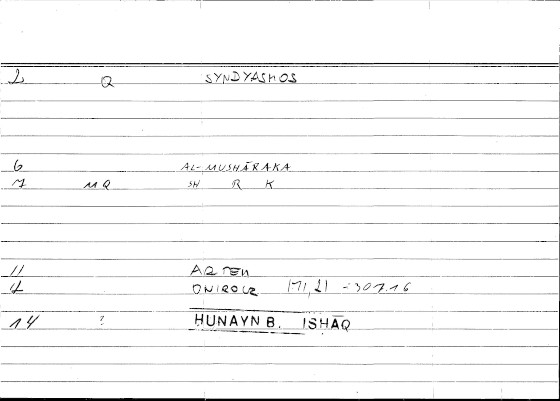 2 Q SYNDYASMOS
6 AL-MUSHĀRAKA
7 MQ SH R K
11 ARTEM
12 ONIROCR 171,21 = 307.16
14 ? ḤUNAYN B. ISHĀQ